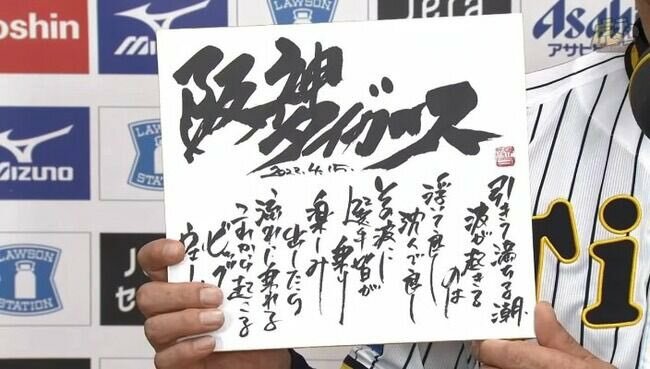 阪神
タイガース
2022.4.15.
引きて満ちる潮
波が起きる
のは
浮いて良し
沈んで良し
その波に
選手皆が
乗り
楽しみ
出したら
流れに乗れる
これから起こる
ビッグ
ウェー
oshin
MIZUNO
LAWSON
Jera
セ
Asahi
アサヒビ
IZUNO
LAWSON
STATION
LAWSON
STATION
ri